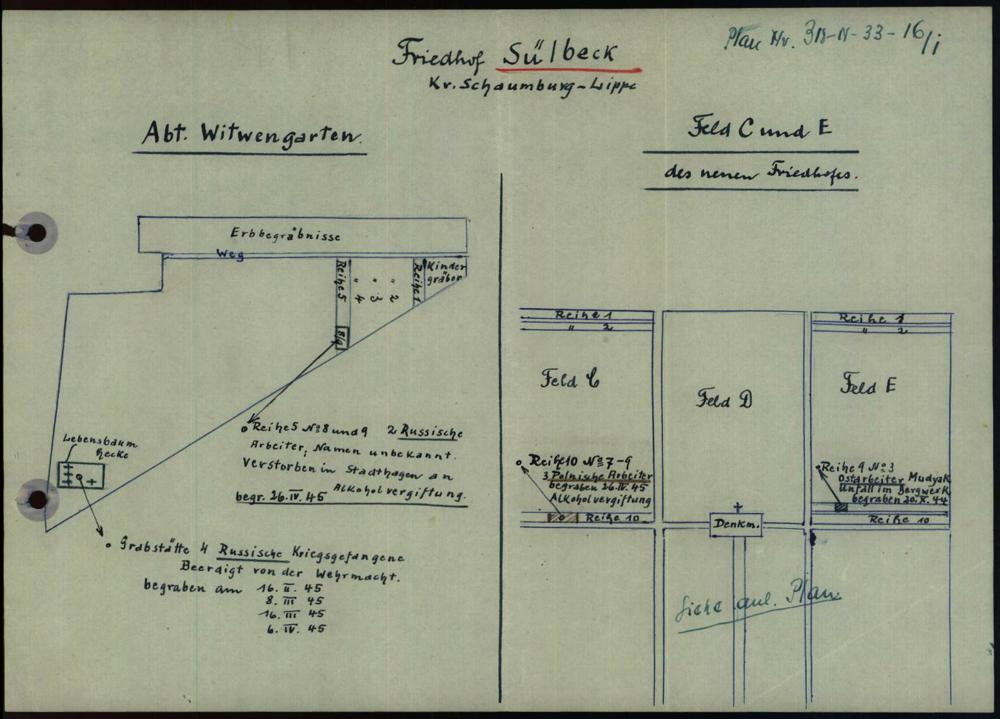 Plan Nr. 3B-N-33-16/i
Friedhof Sülbeck
Kr. Schaumburg-Lippe
Abt. Witwengarten.
Erbbegräbnisse
Weg
Reihe 5
" 4
" 3
" 2
Reihe 1
Kinder
gräber
8/9
Reihe 5 No 8 und 9 2 Russische
Arbeiter, Namen unbekannt.
Verstorben in Stadthagen an
Alkoholvergiftung.
begr. 26.IV.45
Lebensbaum
hecke
Grabstätte 4 Russische Kriegsgefangene
Beerdigt von der Wehrmacht.
begraben am 16. II. 45
8. III 45
16. III 45
6. IV. 45
Feld C und E
des neuen Friedhofes.
Reihe 1
" 2
Feld C
Reihe 10 No 7-9
3 Polnische Arbeiter
begraben 26.IV.45
Alkoholvergiftung
Reihe 10
Feld D
Denkm.
Reihe 1
" 2
Feld E
Reihe 9 No 3
Ostarbeiter Mudyak
Unfall im Bergwerk
begraben 20.X.44
Reihe 10
Siehe anl. Plan